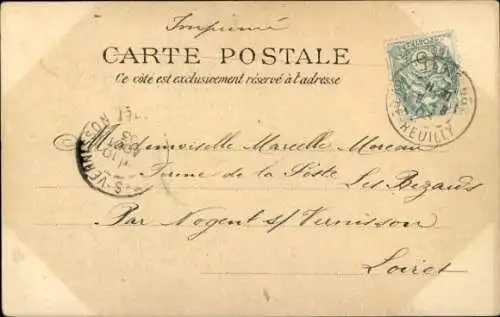 Imprimé
CARTE POSTALE
Ce côté est exclusivement réservé à l'adresse
Mademoiselle Marcelle Moreau
Ferme de la
Les Bezards
Par Nogent s/ Vernisson
Loiret
REUILLY
S-VERNISSON